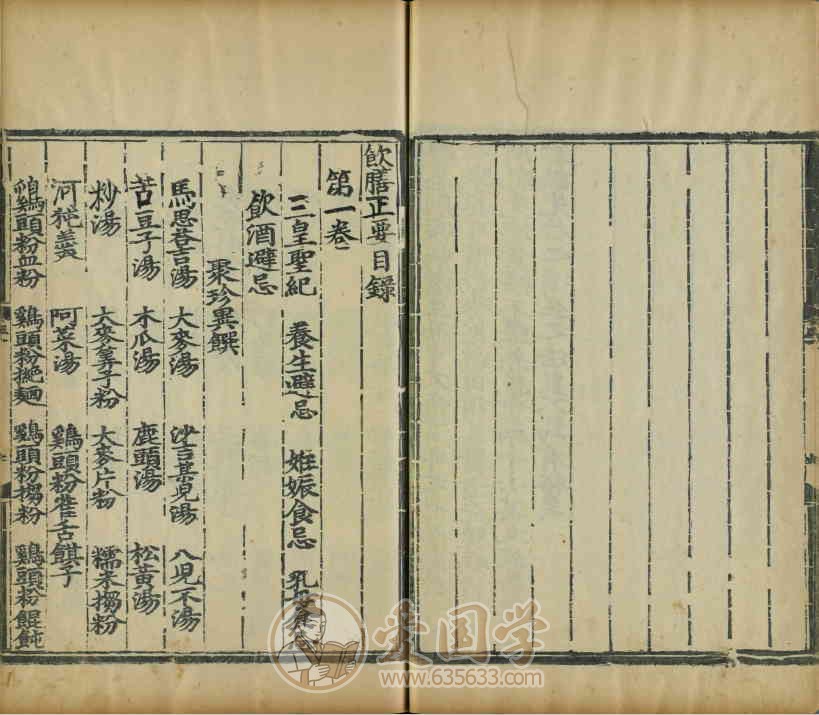 飲膳正要目錄
第一卷
三皇聖紀 養生避忌 姙娠食忌 乳母食忌
飲酒避忌
聚珍異饌
馬思荅吉湯 大麥湯 沙吉某兒湯 八兒不湯
苦豆子湯 木瓜湯 鹿頭湯 松黃湯
炒湯 大麥筭子粉 大麥片粉 糯米搊粉
河㹠羹 阿菜湯 鷄頭粉雀舌餶子
鷄頭粉血粉 鷄頭粉撧麵 鷄頭粉搊粉 鷄頭粉餛飩
爱国学
www.635633.com